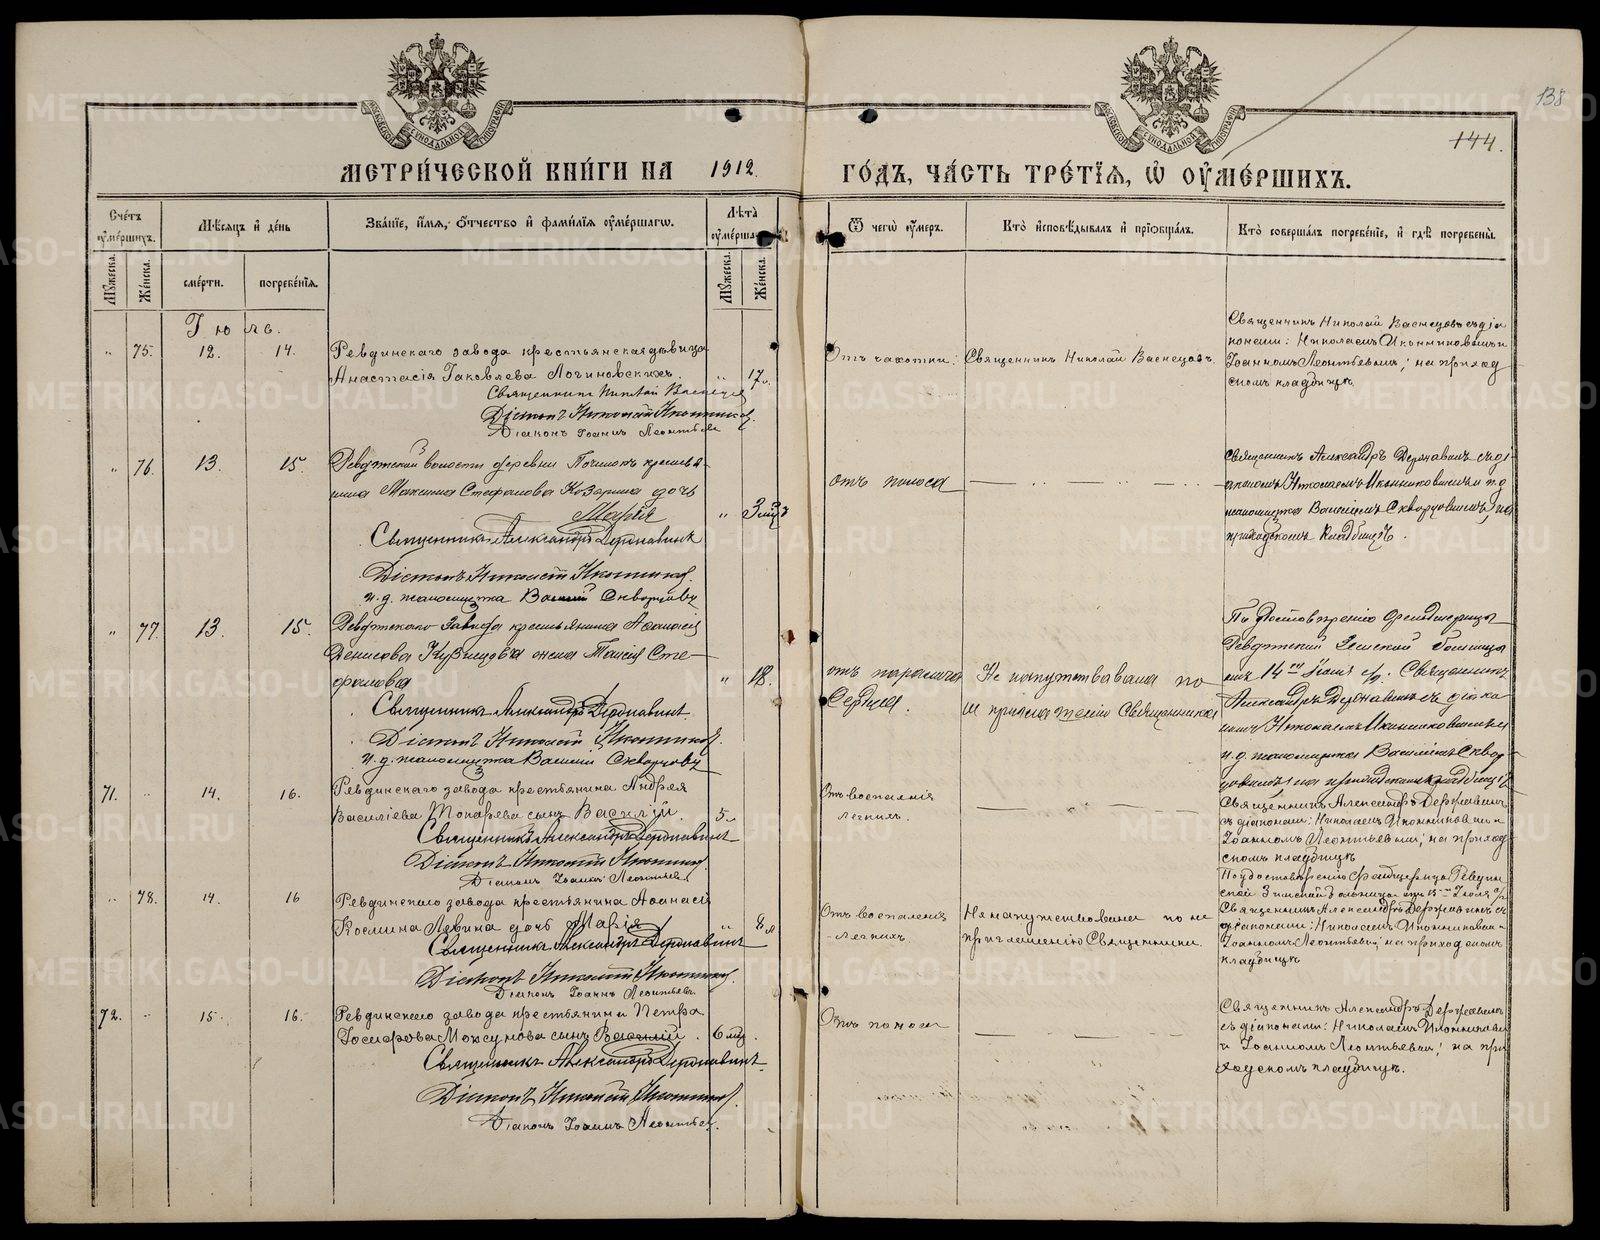 138
144.
МОСКОВСКОЙ СѴНОДАЛЬНОЙ ТИПОГРАФІИ
МОСКОВСКОЙ СѴНОДАЛЬНОЙ ТИПОГРАФІИ
МЕТРИ́ЧЕСКОЙ КНИ́ГИ НА 1912. ГО́ДЪ, ЧА́СТЬ ТРЕ́ТІѦ, Ѡ ОУМЕ́РШИХЪ.
Сче́тъ оуме́ршихъ.
Мѣ́сяцъ и де́нь
Зва́ніе, и́мя, о́тчество и фами́лія оуме́ршагѡ.
Лѣта̀ оуме́ршагѡ
Ѿ чегѡ̀ оу́меръ.
Кто̀ исповѣ́дывалъ и пріобща́лъ.
Кто̀ соверша́лъ погребе́ніе, и гдѣ̀ погребены̀.
Му́жеска.
Же́нска.
сме́рти.
погребе́нія.
Му́жеска.
Же́нска.
Іюль.
" 75. 12. 14.
Ревдинскаго завода крестьянская дѣвица
Анастасія Іаковлева Логиновскихъ. " 17 л.
Священникъ Николай Васнецовъ
Діаконъ Николай Иконниковъ.
Діаконъ Іоаннъ Леонтьевъ
Отъ чахотки.
Священникъ Николай Васнецовъ.
Священникъ Николай Васнецовъ съ діа
конами: Николаемъ Иконниковымъ и
Іоанномъ Леонтьевымъ; на приход
скомъ кладбищѣ
" 76. 13. 15.
Ревдинской волости деревни Починокъ крестья-
нина Максима Стефанова Козырина дочь
Марія " 3 мцъ
Священникъ Александръ Державинъ
Діаконъ Николай Иконниковъ.
и. д. псаломщика Василій Скворцовъ
отъ поноса
Священникъ Александръ Державинъ съ ді-
акономъ Николаемъ Иконниковымъ и и. д.
псаломщика Василіемъ Скворцовымъ, на
приходскомъ кладбищѣ.
" 77. 13. 15.
Ревдинскаго завода крестьянина Аѳанасія
Денисова Кузнецова жена Таисія Сте-
фанова " 18.
Священникъ Александръ Державинъ
Діаконъ Николай Иконниковъ.
и. д. псаломщика Василій Скворцовъ
отъ паралича
Сердца.
Не напутствована по
не приглашенію Священника
По удостовѣренію фельдшерицы
Ревдинской Земской больницы
отъ 14го Іюля с/г. Священникъ
Александръ Державинъ съ діако
номъ Николаемъ Иконниковымъ и
и. д. псаломщика Василіемъ Сквор
цовымъ; на приходскомъ кладбищѣ
71. " 14. 16.
Ревдинскаго завода крестьянина Андрея
Василіева Токарева сынъ Василій. 5 л.
Священникъ Александръ Державинъ
Діаконъ Николай Иконниковъ.
Діаконъ Іоаннъ Леонтьевъ
Отъ воспаленія
легкихъ.
Священникъ Александръ Державинъ
съ діаконами: Николаемъ Иконниковымъ и
Іоанномъ Леонтьевымъ; на приход
скомъ кладбищѣ
" 78. 14. 16
Ревдинскаго завода крестьянина Аѳанасія
Косьмина Левина дочь Марія " 8 л
Священникъ Александръ Державинъ
Діаконъ Николай Иконниковъ.
Діаконъ Іоаннъ Леонтьевъ.
Отъ воспаленія
легкихъ.
Не напутствована по не
приглашенію Священника.
По удостовѣренію фельдшерицы Ревдин
ской Земской больницы отъ 15го Іюля с/г
Священникъ Александръ Державинъ съ
діаконами: Николаемъ Иконниковымъ и
Іоанномъ Леонтьевымъ; на приходскомъ
кладбищѣ
72. " 15. 16.
Ревдинскаго завода крестьянина Петра
Іосифова Моксунова сынъ Василій. 6 мц.
Священникъ Александръ Державинъ.
Діаконъ Николай Иконниковъ
Діаконъ Іоаннъ Леонтьевъ.
Отъ поноса
Священникъ Александръ Державинъ
съ діаконами: Николаемъ Иконниковымъ
и Іоанномъ Леонтьевымъ; на при
ходскомъ кладбищѣ.
METRIKI.GASO-URAL.RU